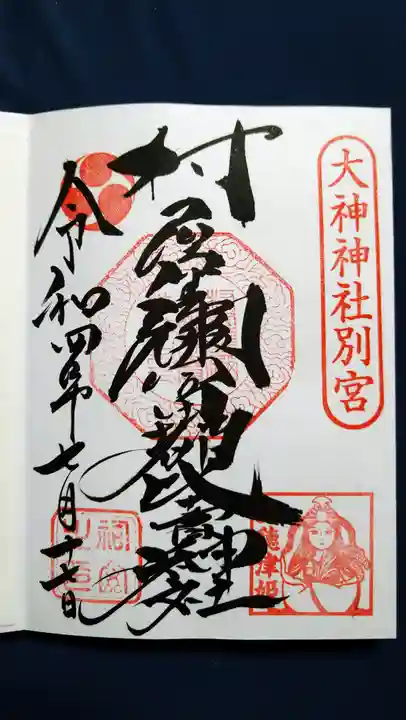 大神神社別宮
村屋坐彌冨都比賣神社
令和四年七月十七日
穂津姫